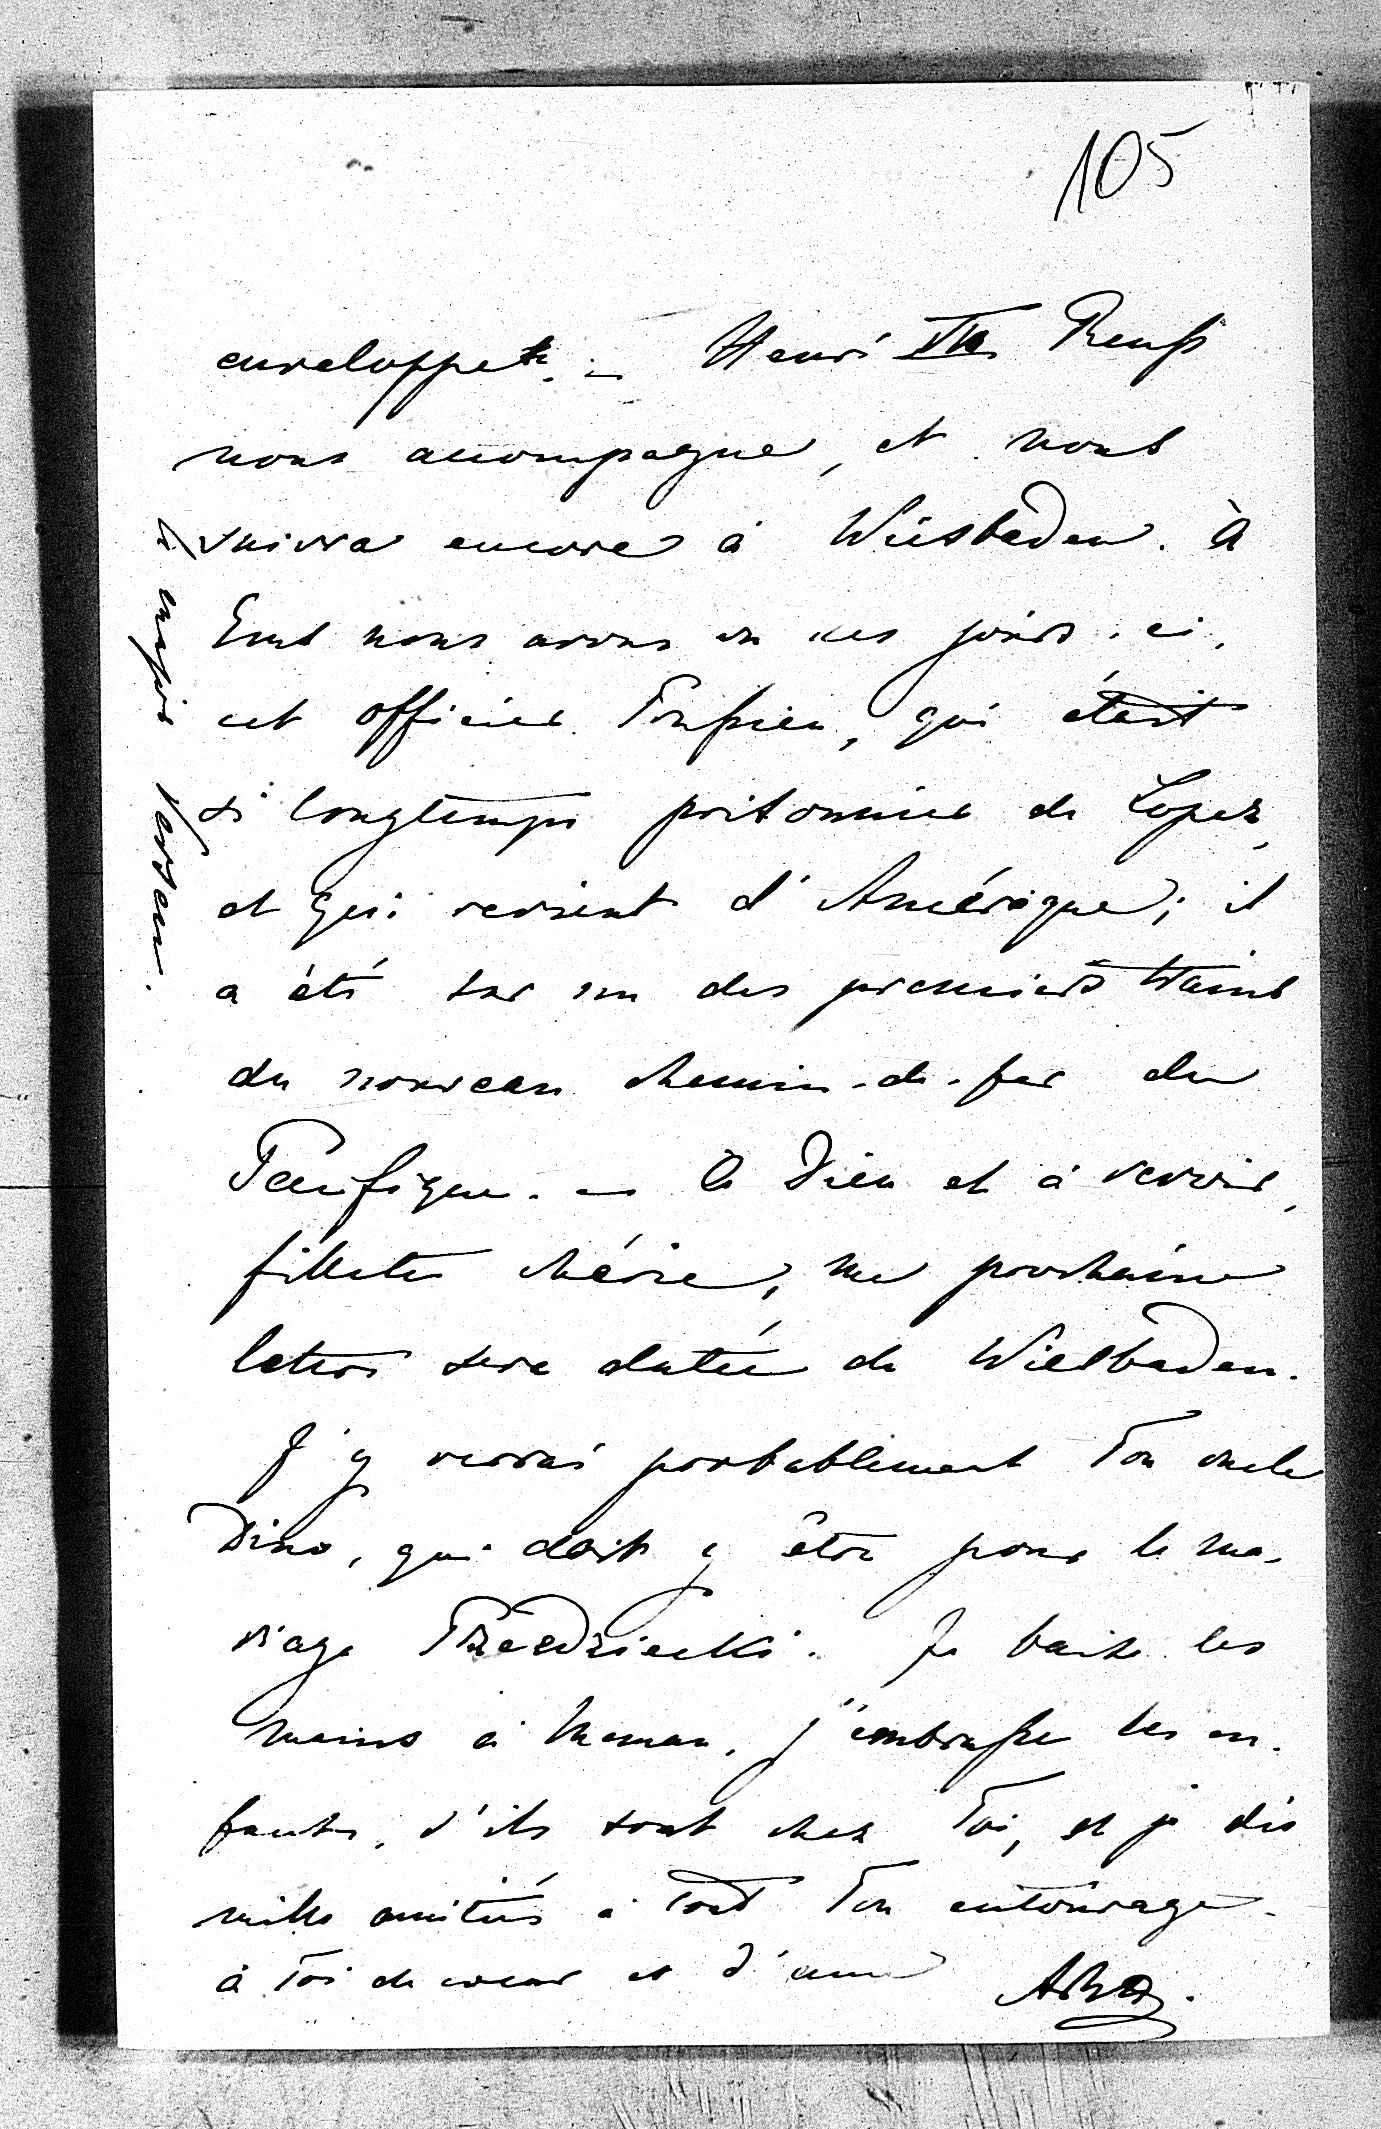 105
enveloppe. — Henri VII Reuss
nous accompagne, et nous
suivra encore à Wiesbaden. à
Ems nous avons eu ces jours-ci,
cet officier Prussien, qui était
si longtemps prisonnier de Lopez,
et qui revient d'Amérique; il
a été sur un des premiers trains
du nouveau chemin-de-fer du
Pacifique. — à Dieu et à revoir,
fillette chérie, ma prochaine
lettre sera datée de Wiesbaden.
J'y verrai probablement Ton oncle
Dino, qui doit y être pour le ma-
riage Przezdziecki. Je baise les
mains à Maman, j'embrasse les en-
fants, s'ils sont chez Toi, et je dis
mille amitiés à tout Ton entourage.
à Toi de coeur et d'âme
major Versen.